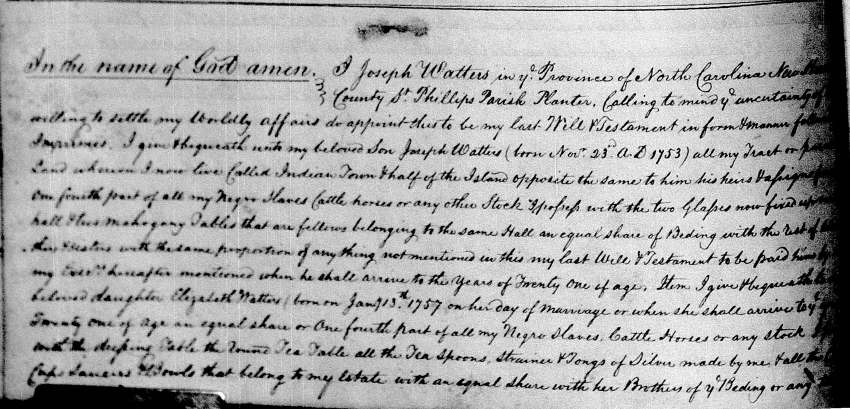 In the name of God amen. I Joseph Watters in yᵉ Province of North Carolina New
County Sᵗ Phillips Parish Planter. Calling to mind yᵉ uncertainty of
willing to settle my Worldly affairs do appoint this to be my last Will & Testament in form & manner
Imprimes. I give & bequeath unto my beloved Son Joseph Watters (born Novʳ 23ᵈ A.D 1753) all my Tract or
Land whereon I now live Called Indian Town & half of the Island opposite the same to him his heirs & assigns
One fourth part of all my Negro Slaves Cattle horses or any other Stock I possess with the two Glasses now fixed up
hall & two mahogany Tables that are fellows belonging to the same Hall an equal share of Beding with the rest of
& sisters with the same proportion of any thing not mentioned in this my last Will & Testament to be paid him by
my Execʳˢ hereafter mentioned when he shall arrive to the Years of Twenty One of age. Item I give & bequeath to
beloved daughter Elizabeth Watters (born on Janʸ 13ᵗʰ 1757 on her day of marriage or when she shall arrive to yᵉ
Twenty one of Age an equal share or One fourth part of all my Negro Slaves. Cattle Horses or any stock
with the dressing Table the round Tea Table all the Tea Spoons, Strainer & Tongs of Silver made by me & all the
Cups Saucers & Bowls that belong to my Estate with an equal share with her Brothers of yᵉ Beding or any